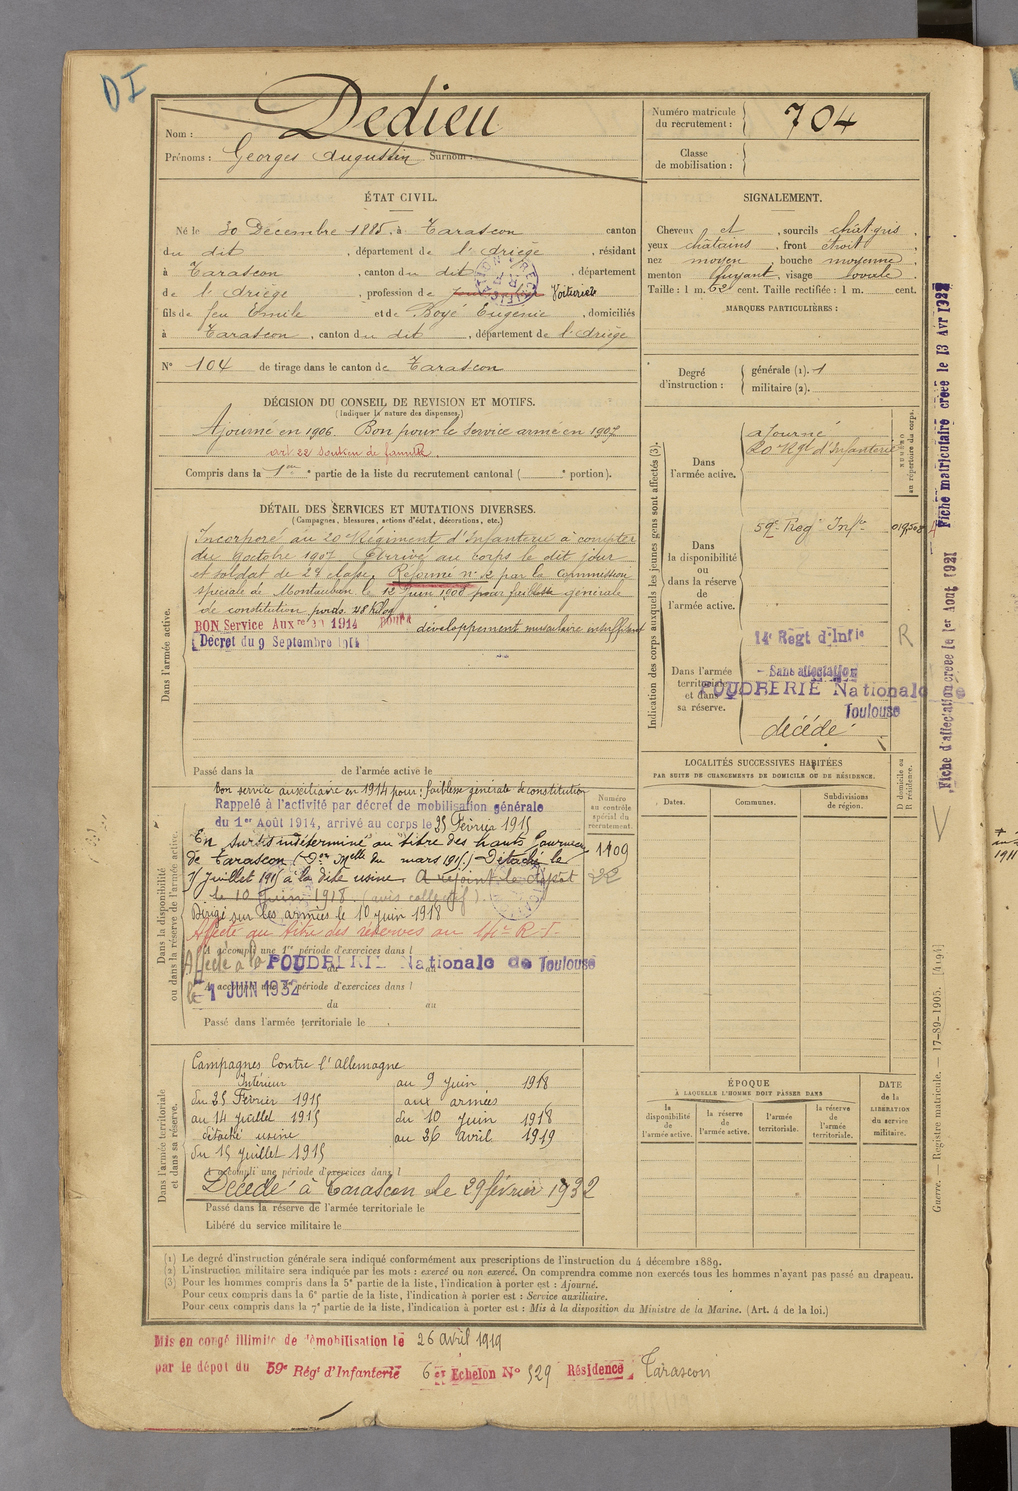 DI
Nom : Dedieu
Prénoms : Georges Augustin Surnom :
Numéro matricule du recrutement : 704
Classe de mobilisation :
ÉTAT CIVIL.
Né le 30 Décembre 1885, à Tarascon canton
du dit, département de l'Ariège, résidant
à Tarascon, canton du dit, département
de l'Ariège, profession de Voiturier
fils de feu Emile et de Boyé Eugénie, domiciliés
à Tarascon, canton du dit, département de l'Ariège
N° 104 de tirage dans le canton de Tarascon
SIGNALEMENT.
Cheveux et, sourcils chât gris,
yeux châtains, front étroit,
nez moyen, bouche moyenne,
menton fuyant, visage ovale.
Taille : 1 m. 62 cent. Taille rectifiée : 1 m. cent.
MARQUES PARTICULIÈRES :
Degré d'instruction :
générale (1). 1
militaire (2).
DÉCISION DU CONSEIL DE REVISION ET MOTIFS.
(Indiquer la nature des dispenses.)
Ajourné en 1906. Bon pour le service armé en 1907
art 22 Soutien de famille.
Compris dans la 1ère partie de la liste du recrutement cantonal ( portion).
DÉTAIL DES SERVICES ET MUTATIONS DIVERSES.
(Campagnes, blessures, actions d'éclat, décorations, etc.)
Dans l'armée active.
Incorporé au 20e Régiment d'Infanterie à compter
du 9 octobre 1907. Arrivé au corps le dit jour
et soldat de 2e classe. Réformé n° 2 par la Commission
spéciale de Montauban le 12 Juin 1908 pour faiblesse générale
de constitution poids 48 Kilog
développement musculaire insuffisant
BON Service Auxre 1914 pour
Décret du 9 Septembre 1914
Passé dans la de l'armée active le
Indication des corps auxquels les jeunes gens sont affectés (3).
Dans l'armée active.
ajourné
20 Rgt d'Infanterie
NUMÉRO au répertoire du corps.
Dans la disponibilité ou dans la réserve de l'armée active.
59e Reg Infie
Dans l'armée territoriale et dans sa réserve.
14e Régt d'Infie
R
Sans affectation
POUDRERIE Nationale de
Toulouse
décédé
Fiche matriculaire créée le 13 Avr 1922
Fiche d'affectation créée le 1er Aout 1921
LOCALITÉS SUCCESSIVES HABITÉES
PAR SUITE DE CHANGEMENTS DE DOMICILE OU DE RÉSIDENCE.
Dates.
Communes.
Subdivisions de région.
D domicile ou R résidence.
Dans la disponibilité ou dans la réserve de l'armée active.
Bon service auxiliaire en 1914 pour : faiblesse générale de constitution
Rappelé à l'activité par décret de mobilisation générale
du 1er Août 1914, arrivé au corps le 25 Février 1915
En sursis indéterminé au titre des hauts fourneaux
de Tarascon mars 1915) Détaché le
15 Juillet 1915 à la dite usine A rejoint le dépot
le 10 Juin 1918 (avis collectif).
Dirigé sur les armées le 10 juin 1918
Affecté au titre des réserves au 14e R.I.
A accompli une 1re période d'exercices dans l
du au
Affecté à la POUDRERIE Nationale de Toulouse
A accompli une 2e période d'exercices dans l
le 1 JUIN 1932
du au
Passé dans l'armée territoriale le
Numéro au contrôle spécial du recrutement.
1409
Dans l'armée territoriale et dans sa réserve.
Campagnes Contre l'Allemagne
Intérieur
du 25 Février 1915
au 14 juillet 1915
détaché usine
du 15 juillet 1915
au 9 juin 1918
aux armées
du 10 juin 1918
au 26 avril 1919
A accompli une période d'exercices dans l
Décédé à Tarascon le 29 février 1932
Passé dans la réserve de l'armée territoriale le
Libéré du service militaire le
ÉPOQUE
À LAQUELLE L'HOMME DOIT PASSER DANS
la disponibilité de l'armée active.
la réserve de l'armée active.
l'armée territoriale.
la réserve de l'armée territoriale.
DATE de la LIBÉRATION du service militaire.
Guerre. — Registre matricule. — 17-89-1905. [4194]
(1) Le degré d'instruction générale sera indiqué conformément aux prescriptions de l'instruction du 4 décembre 1889.
(2) L'instruction militaire sera indiquée par les mots : exercé ou non exercé. On comprendra comme non exercés tous les hommes n'ayant pas passé au drapeau.
(3) Pour les hommes compris dans la 5e partie de la liste, l'indication à porter est : Ajourné.
Pour ceux compris dans la 6e partie de la liste, l'indication à porter est : Service auxiliaire.
Pour ceux compris dans la 7e partie de la liste, l'indication à porter est : Mis à la disposition du Ministre de la Marine. (Art. 4 de la loi.)
Mis en congé illimité de démobilisation le 26 avril 1919
par le dépôt du 59e Régt d'Infanterie 6e Echelon N° 529 Résidence Tarascon